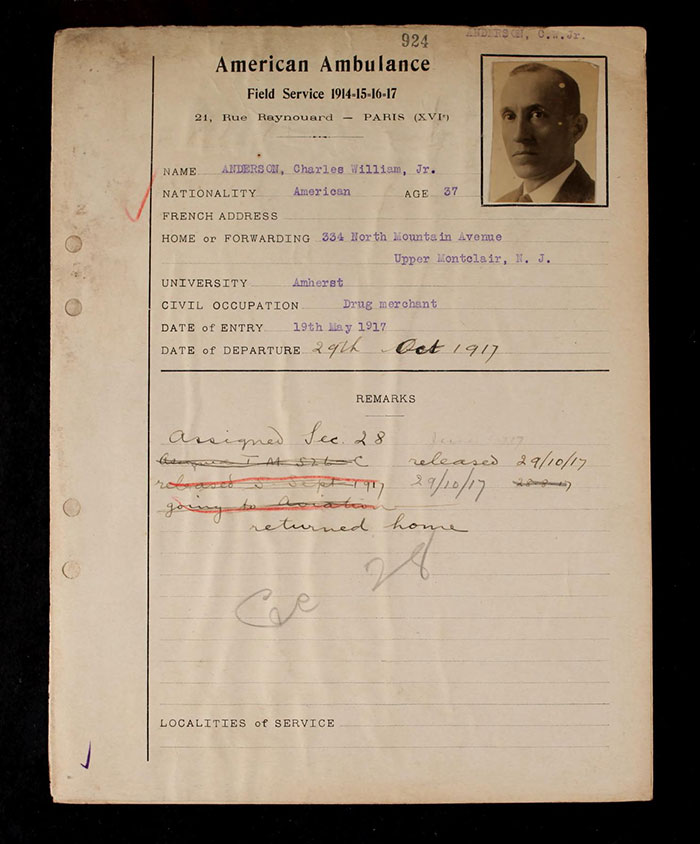 924
ANDERSON, C.W.Jr.
American Ambulance
Field Service 1914-15-16-17
21, Rue Raynouard — PARIS (XVIᵉ)
NAME ANDERSON, Charles William, Jr.
NATIONALITY American AGE 37
FRENCH ADDRESS
HOME or FORWARDING 334 North Mountain Avenue
Upper Montclair, N. J.
UNIVERSITY Amherst
CIVIL OCCUPATION Drug merchant
DATE of ENTRY 19th May 1917
DATE of DEPARTURE 29th Oct 1917
REMARKS
Assigned Sec. 28
released 29/10/17
released 5 Sept 1917 29/10/17
going to Aviation
returned home
28
LOCALITIES of SERVICE